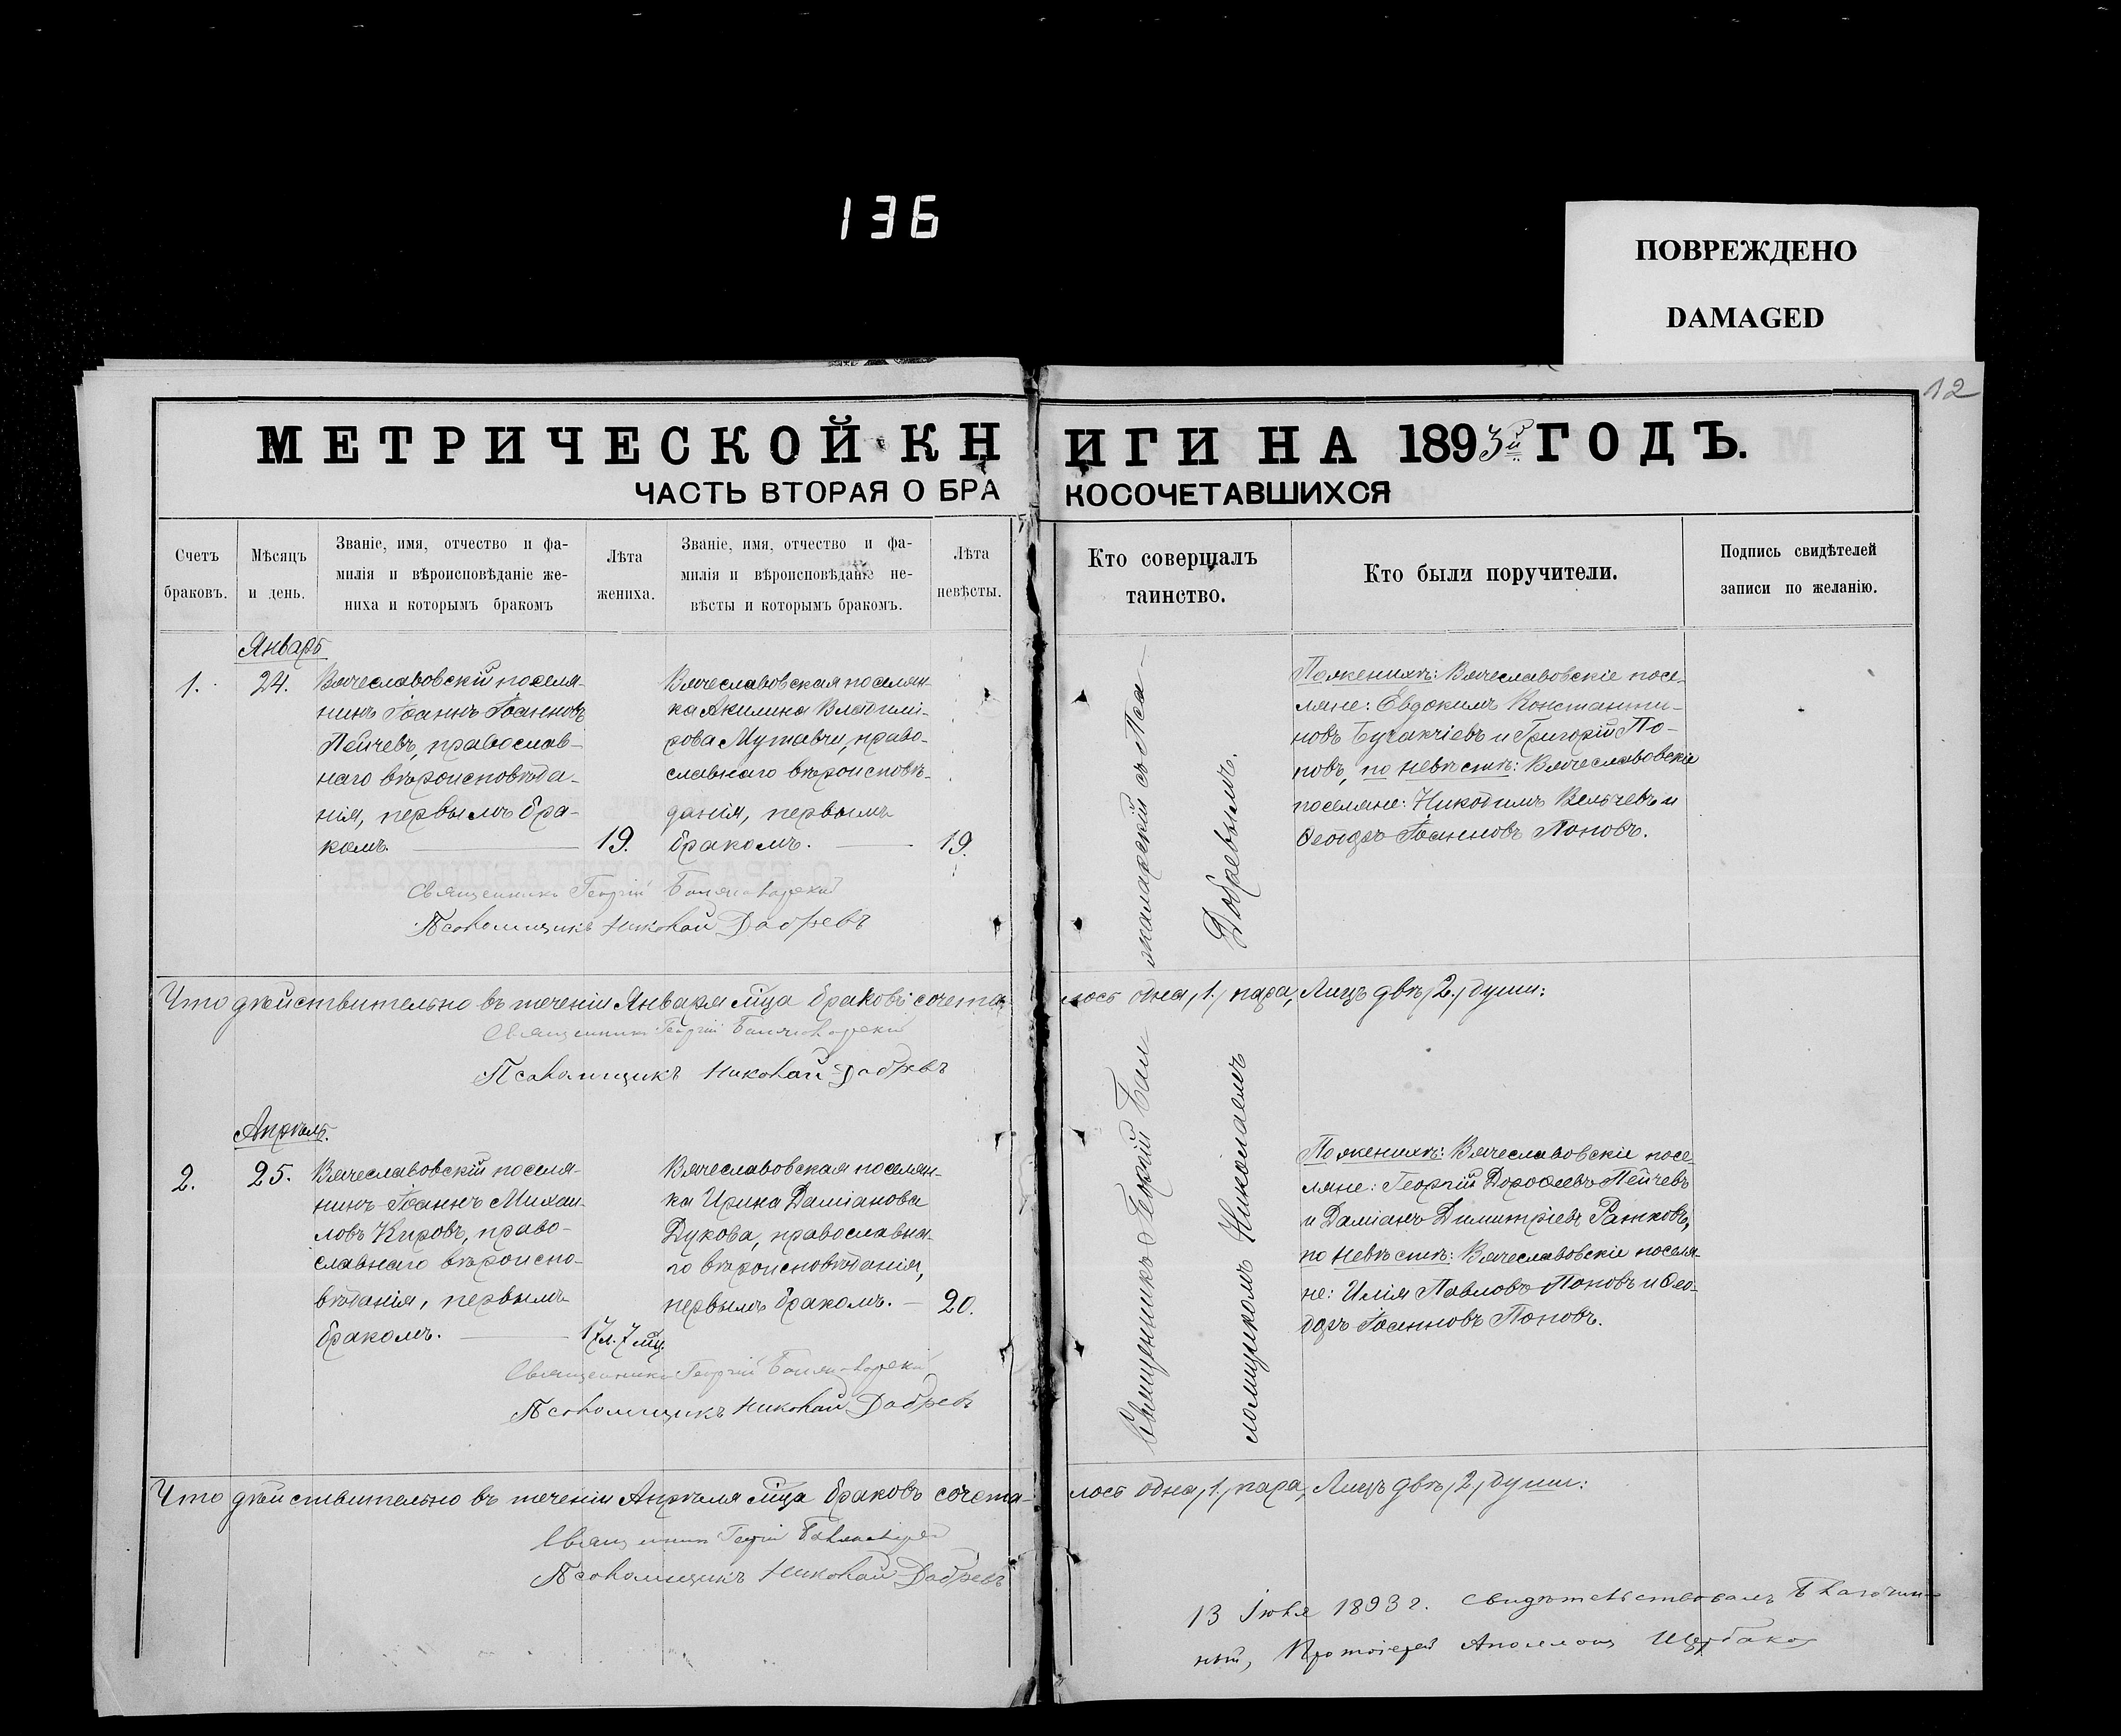 136
ПОВРЕЖДЕНО
DAMAGED
12
МЕТРИЧЕСКОЙ КНИГИ НА 1893й ГОДЪ.
ЧАСТЬ ВТОРАЯ О БРАКОСОЧЕТАВШИХСЯ
Счетъ
браковъ.
Мѣсяцъ
и день.
Званіе, имя, отчество и фа-
милія и вѣроисповѣданіе же-
ниха и которымъ бракомъ
Лѣта
жениха.
Званіе, имя, отчество и фа-
милія и вѣроисповѣданіе не-
вѣсты и которымъ бракомъ.
Лѣта
невѣсты.
Кто совершалъ
таинство.
Кто были поручители.
Подпись свидѣтелей
записи по желанію.
Январь
1.
24.
Вячеславовскій поселя-
нинъ Іоаннъ Іоанновъ
Пейчевъ, православ-
наго вѣроисповѣда-
нія, первымъ бра-
комъ.
19.
Вячеславовская поселян-
ка Акилина Владимі-
рова Мутавчи, право-
славнаго вѣроисповѣ-
данія, первымъ
бракомъ.
19.
По женихѣ: Вячеславовскіе посе-
ляне: Евдокимъ Константи-
новъ и Григорій По-
повъ, по невѣстѣ: Вячеславовскіе
поселяне: Никодимъ Вельчевъ и
Ѳеодоръ Іоанновъ Поповъ.
Священникъ Георгій
Псаломщикъ Николай Добревъ
Что дѣйствительно въ теченіи Января мѣца браковъ сочета-
лось одна, 1, пара, Лицъ двѣ, 2, души:
Священникъ Георгій
Псаломщикъ Николай Добревъ
Апрѣль.
2.
25.
Вячеславовскій поселя-
нинъ Іоаннъ Михаи-
ловъ Кировъ, право-
славнаго вѣроиспо-
вѣданія, первымъ
бракомъ.
17л. 7 мц.
Вячеславовская поселян-
ка Ирина Даміанова
Дукова, православна-
го вѣроисповѣданія,
первымъ бракомъ.
20.
Священникъ Георгій
ломщикомъ Николаемъ
Добревымъ.
По женихѣ: Вячеславовскіе посе-
ляне: Георгій Дороѳеевъ Пейчевъ
и Даміанъ Димитріевъ Ратковъ,
по невѣстѣ: Вячеславовскіе поселя-
не: Илія Павловъ Поповъ и Ѳео-
доръ Іоанновъ Поповъ.
Священникъ Георгій
Псаломщикъ Николай Добревъ
Что дѣйствительно въ теченіи Апрѣля мѣца браковъ сочета-
лось одна, 1, пара, Лицъ двѣ, 2, души:
Священникъ Георгій
Псаломщикъ Николай Добревъ
13 Іюля 1893 г. свидѣтельствовалъ Благочин-
ный, Протоіерей Аполлонъ Щербаковъ